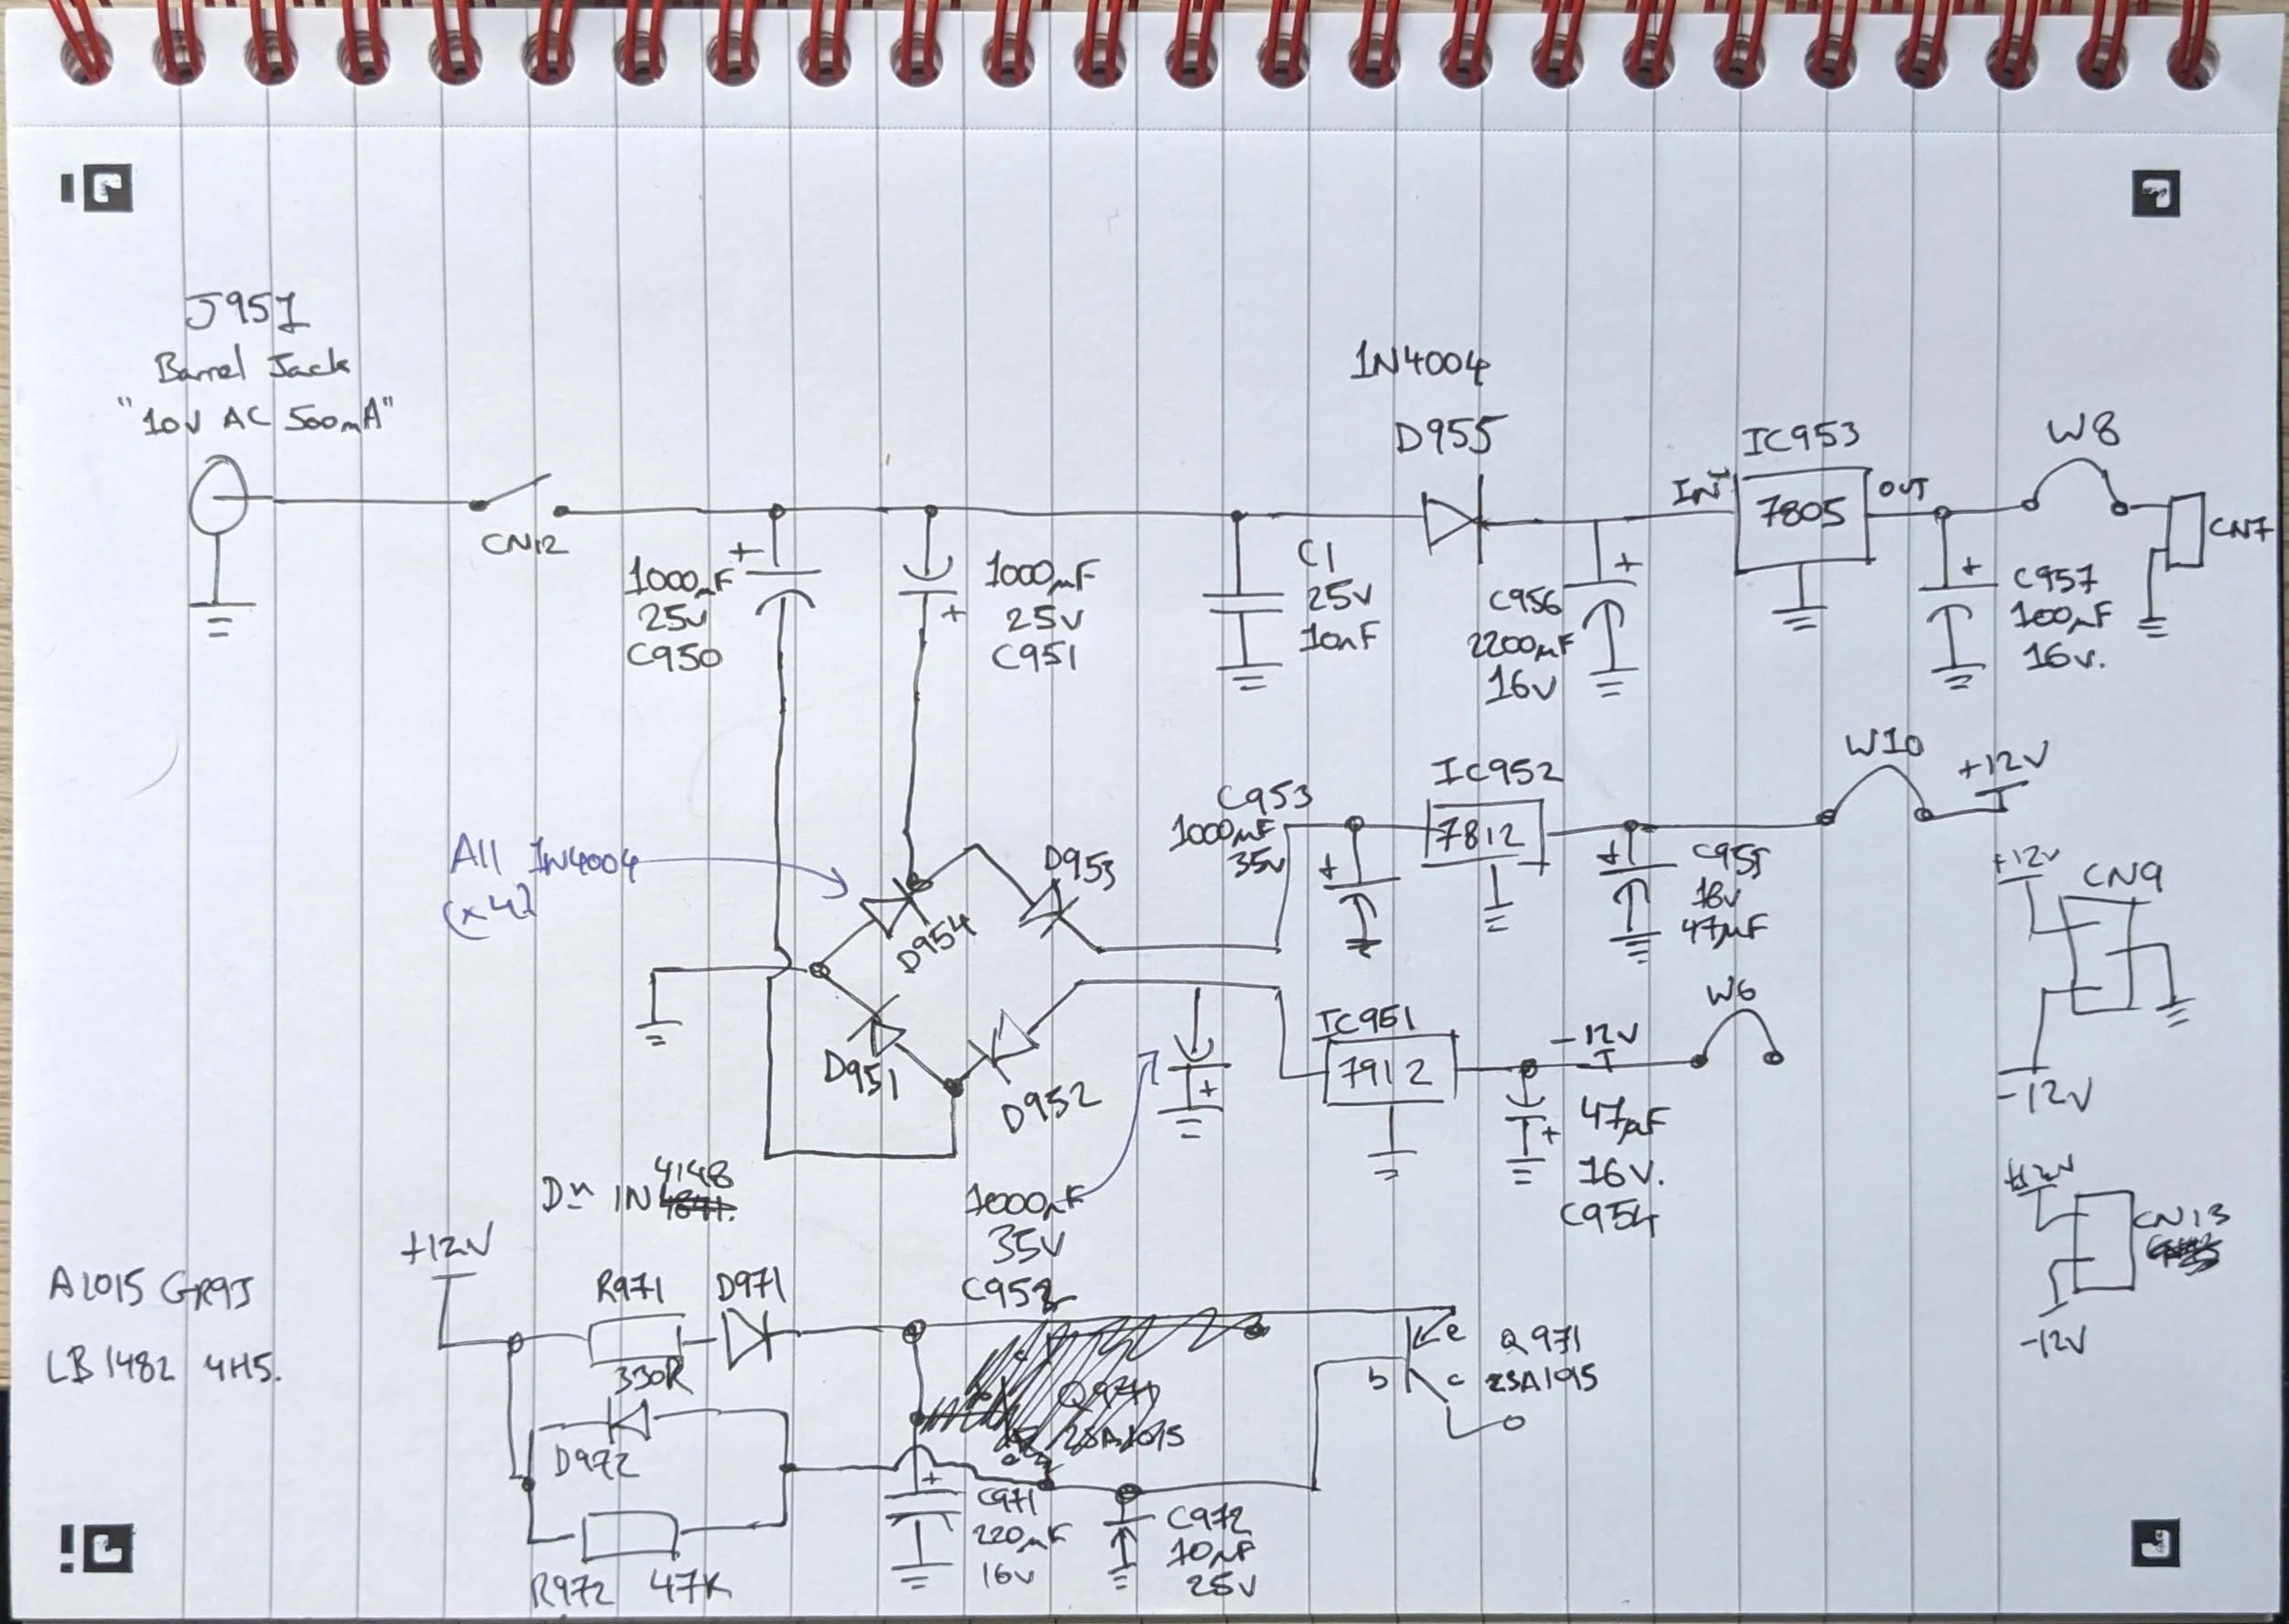 J951
Barrel Jack
"10V AC 500mA"
CN12
+
1000µF
25V
C950
1000µF
25V
C951
+
C1
25V
10nF
1N4004
D955
C956
2200µF
16V
+
IN
IC953
7805
OUT
+
C957
100µF
16V.
W8
CN7
All 1N4004
(x4)
D954
D953
D951
D952
C953
1000µF
35V
+
IC952
7812
+
C955
16V
47µF
W10
+12V
+12V
CN9
-12V
IC951
7912
-12V
W6
+
47µF
16V.
C954
+
1000µF
35V
C952
+12V
CN13
-12V
Dn 1N4148
+12V
A1015 GR9J
LB1482 4H5.
R971
330R
D971
D972
R972 47K
Q971
2SA1015
+
C971
220µF
16V
C972
10µF
25V
e
b
c
Q971
2SA1015